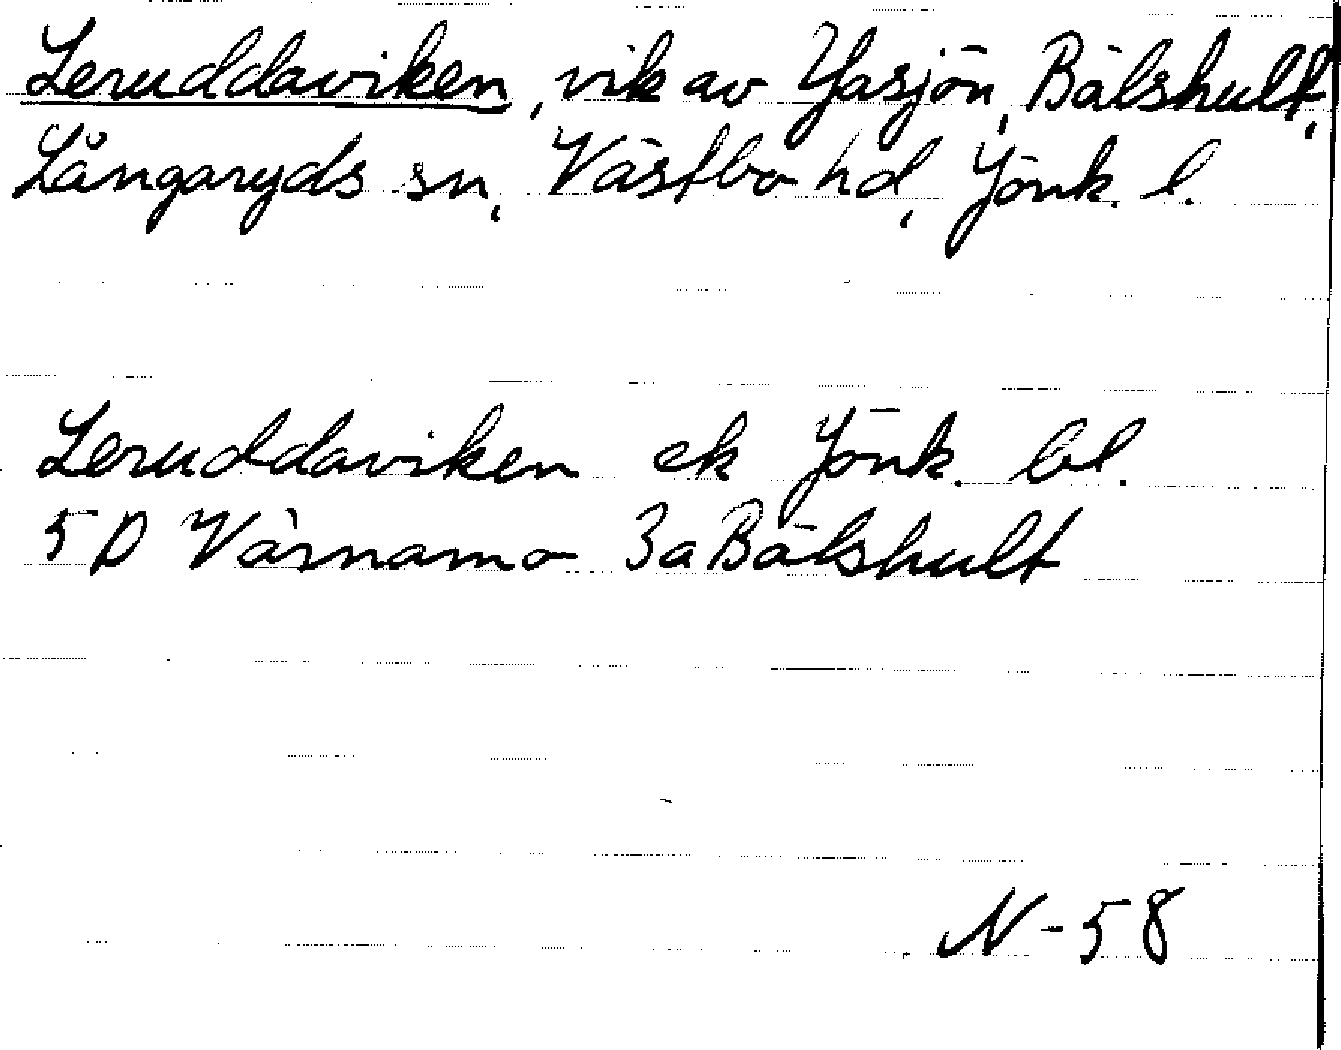 Leruddaviken, vik av Yasjön, Bälshult,
Långaryds sn, Västbo hd, Jönk. l.
Leruddaviken ek Jönk. bl.
5 D Värnamo 3a Bälshult
N-58